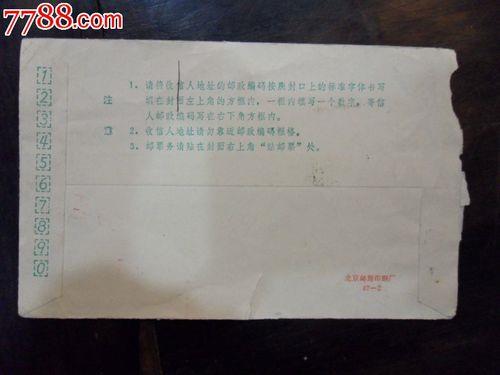 7788.com
1
2
3
4
5
6
7
8
9
0
注意
1、请将收信人地址的邮政编码按照封口上的标准字体书写
填在封面左上角的方框内，一框内填写一个数字，寄信
人邮政编码写在右下角方框内。
2、收信人地址请勿靠近邮政编码框格。
3、邮票务请贴在封面右上角“贴邮票”处。
北京邮局印刷厂
87—2